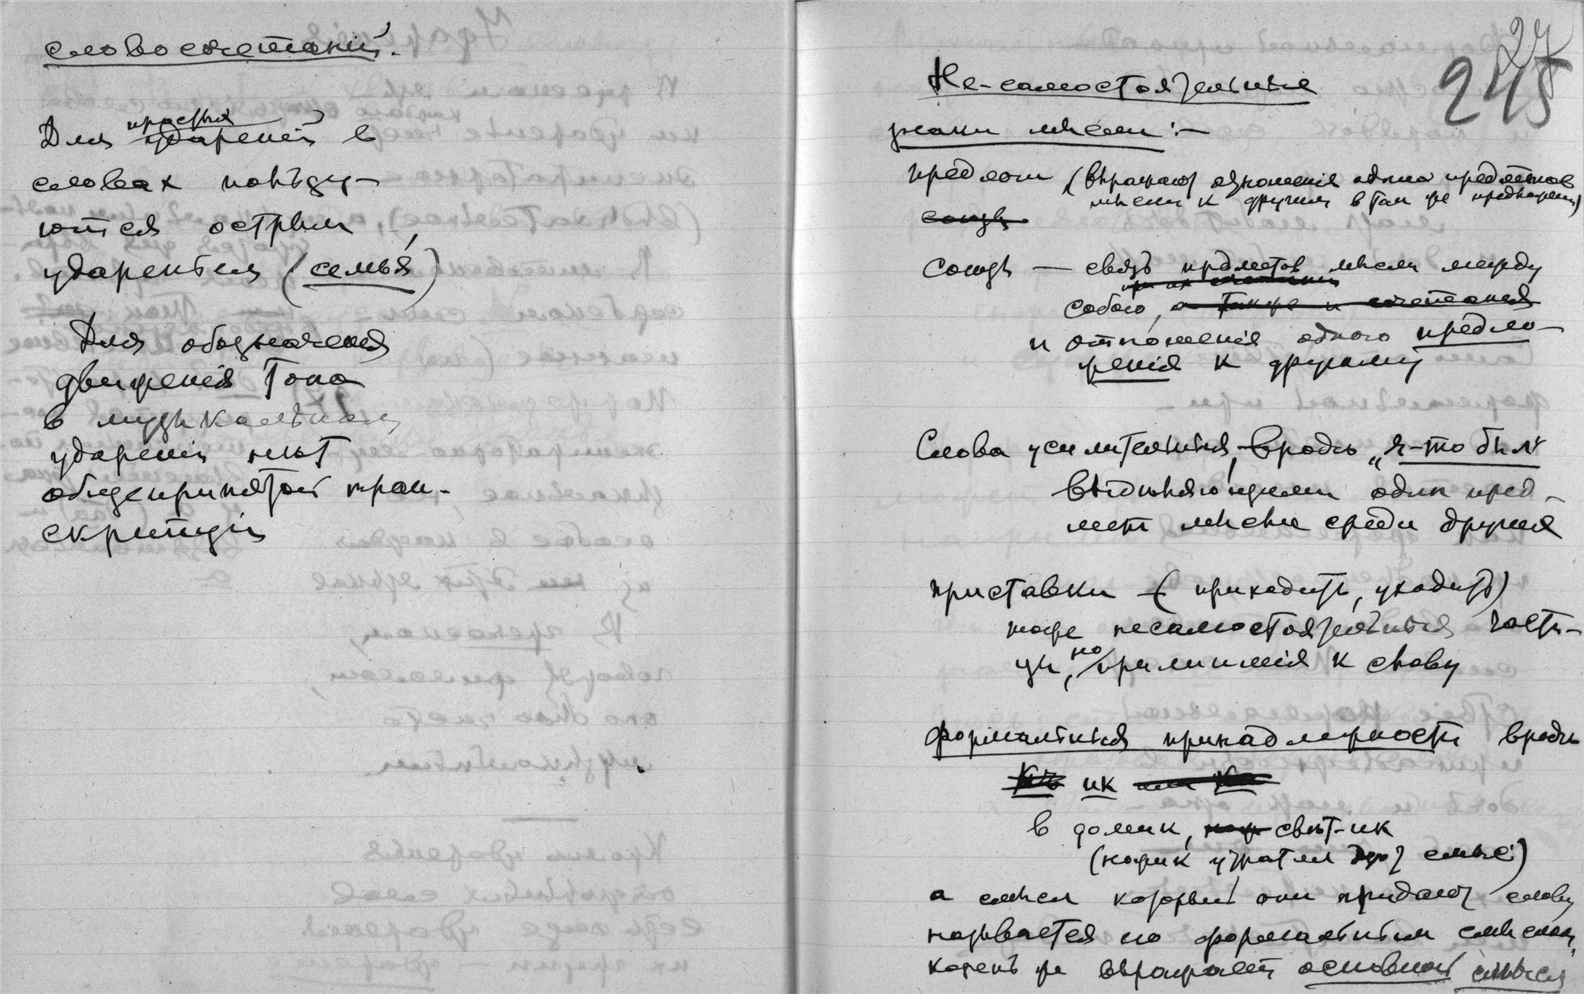 словосочетаній.
Для простыя ударений в
словах пользу-
ются острым
ударением (семья́)
Для обозначения
движенія Тона
в музыкальном
ударении нет
общепринятой тран-
скрипціи
245
Не-самостоятельные
знаки мысли:-
предлоги (выражают отношенія одних предметов
мысли к другим в том же предложении)
союзы
Союзы — связь предметов мысли между
собою, а также и сочетания
и отношенія одного предло-
женія к другому
Слова усилительныя, вроде „я-то был
выдѣляющими один пред-
мет мысли среди других
приставки - (приходить, уходить)
тоже несамостоятельныя части-
цы, но прилипшія к слову
Формальныя принадлежности вроде
ик
в домик, свѣт-ик
(ножик утратил этот смысл)
а смысл который они придают слову
называется по формальным смыслом,
корень же выражает основной смысл